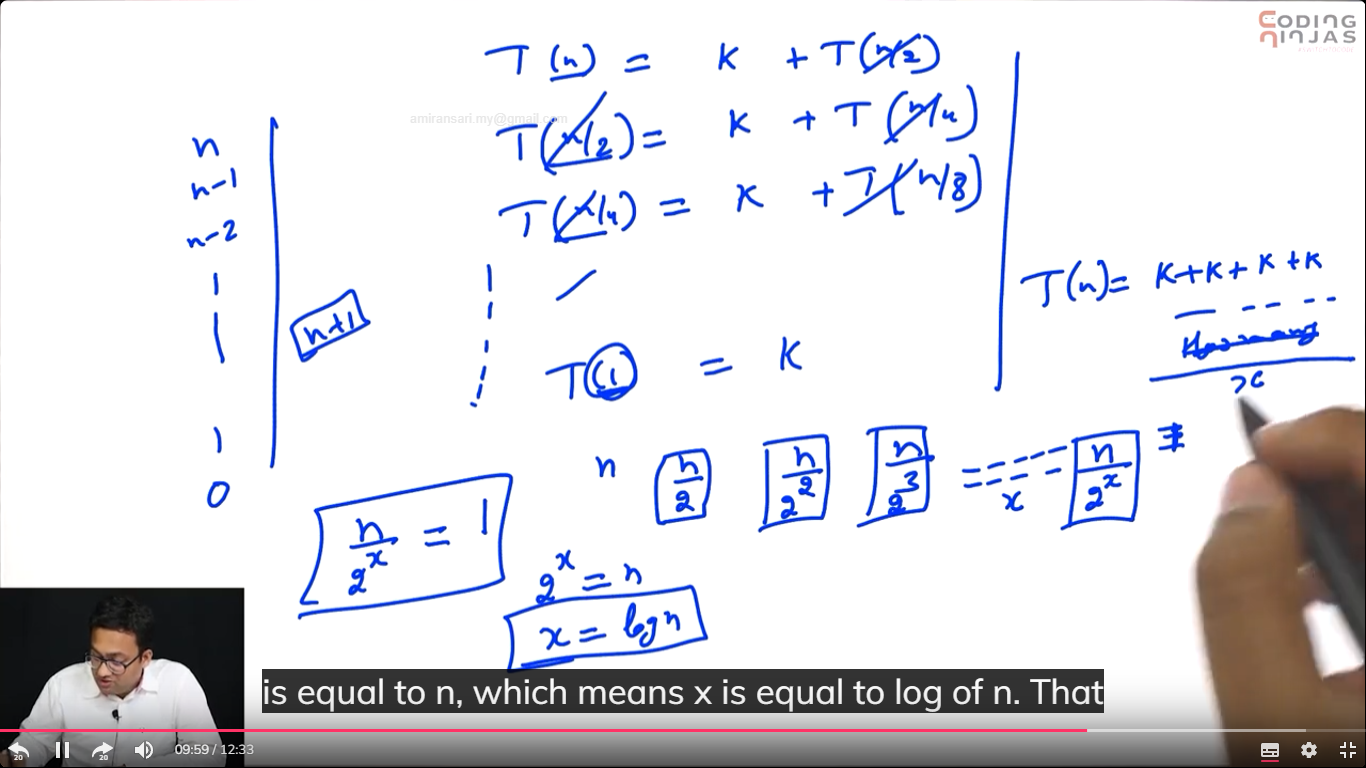 CODING
NINJAS
T(n) = K + T(n/2)
amiransari.my@gmail.com
T(n/2) = K + T(n/4)
T(n/4) = K + T(n/8)
n
n-1
n-2
1
0
n+1
T(1) = K
T(n) = K+K+K+K
x
n n/2 n/2^2 n/2^3 ===--- x n/2^x
n/2^x = 1
2^x = n
x = log n
is equal to n, which means x is equal to log of n. That
20 20 09:59 / 12:33